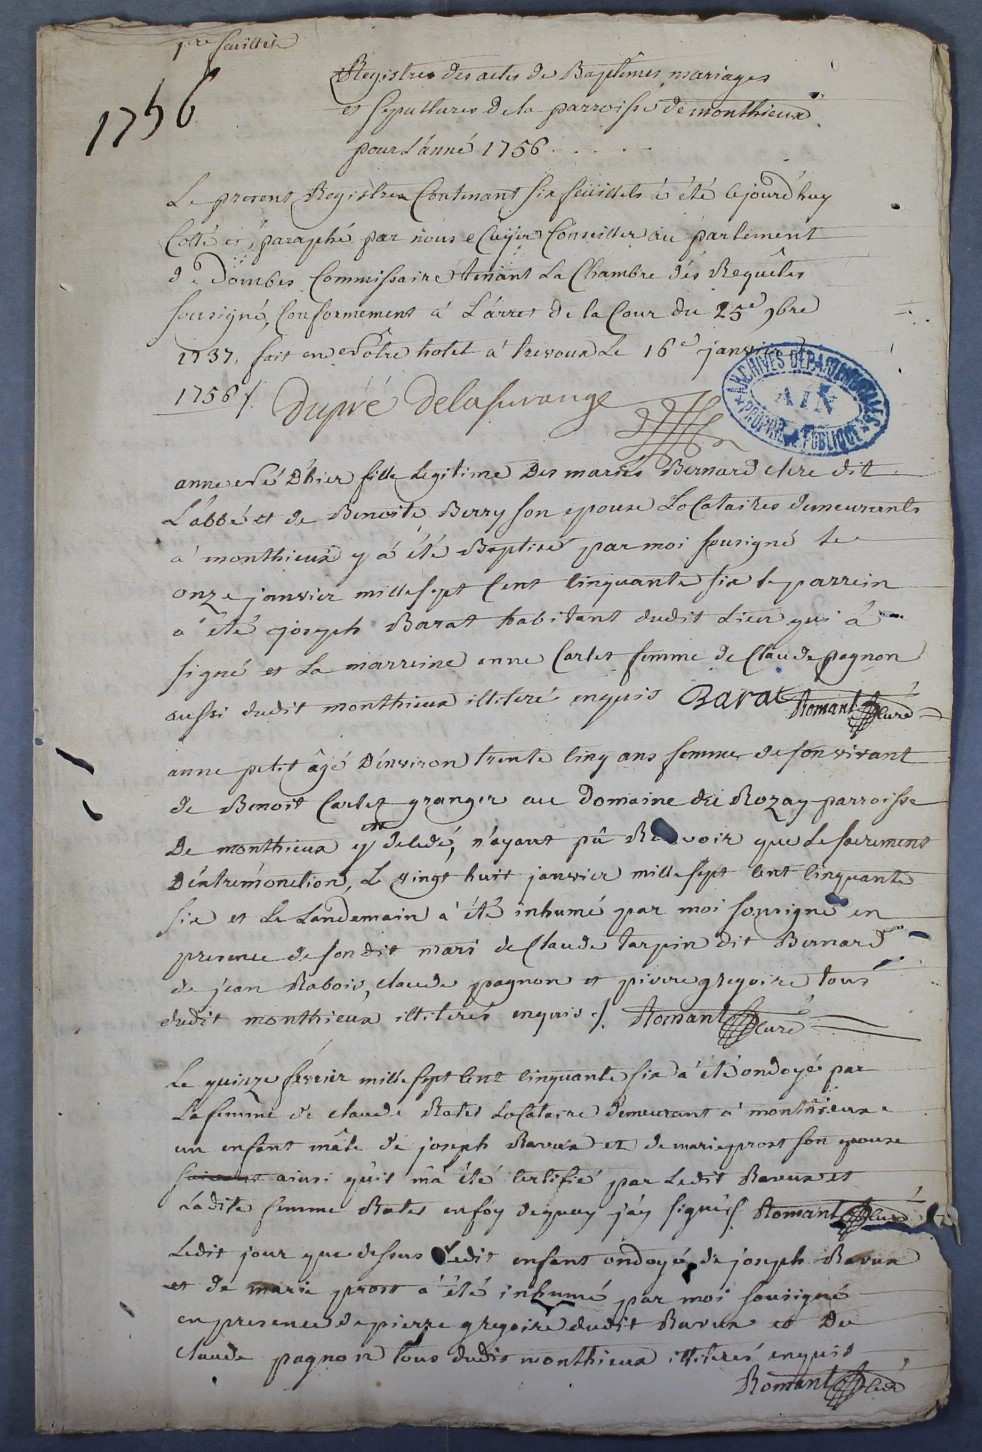 1re feuillet
1756
Registre des actes de Baptêmes mariages
et sepultures de la parroisse de monthieux
pour L'anné 1756
Le present Registre Contenant six feüillets à été cejourd'huy
Cotté et paraphé par nous Ecuÿer Conseiller au parlement
de Dombes Commissaire tenant La Chambre dés Requêtes
sousigné, Conformement à L'arret de la Cour du 25e 9bre
1737. fait en nôtre hotel à Trevoux Le 16e janvier
1756 /.
dupré delasurange
ARCHIVES DÉPARTEMENTALES
AIN
PROPRIÉTÉ PUBLIQUE
anne né D'hier fille Legitime Des mariés Bernard clere dit
L'abbé et de Benoite Berry son epouse Locataires demeurants
à monthieux y à été Baptisé par moi sousigné le
onze janvier mille sept Cent Cinquante six le parrein
a été joseph Barat habitant dudit Lieu qui à
signé et La marreine anne Carlet femme de Claude pagnon
aussi dudit monthieux illiteré enquis Barat Romant Curé
anne petit âgé D'environ trente Cinq ans femme de son vivant
de Benoit Carlet granger au Domaine du Rozay parroisse
De monthieux y est décedé, n'ayant pû Recevoir que Le sacrement
D'extrémonction, Le vingt huit janvier mille sept Cent Cinquante
six et Le Landemain à été inhumé par moi sousigné en
presence de sondit mari de Claude tarpin dit Bernard
de jean Rabois, claude pagnon et pierre gregoire tous
dudit monthieux illiterés enquis /. Romant Curé
Le quinze fevrier mille sept Cent Cinquante six à été ondoyé par
La femme de claude Rates Locataire Demeurant à monthieux
un enfant mâle de joseph Ravux et de marie prost son epouse
ainsi qu'il m'a été Certifié par Ledit Ravux et
Ladite femme Rates en foy dequoy j'ay signé /. Romant Curé
Ledit jour que dessus Ledit enfant ondoyé de joseph Ravux
et de marie prost à été inhumé par moi sousigné
en presence de pierre gregoire dudit Ravux et De
claude pagnon tous dudit monthieux illiterés enquis
Romant Curé